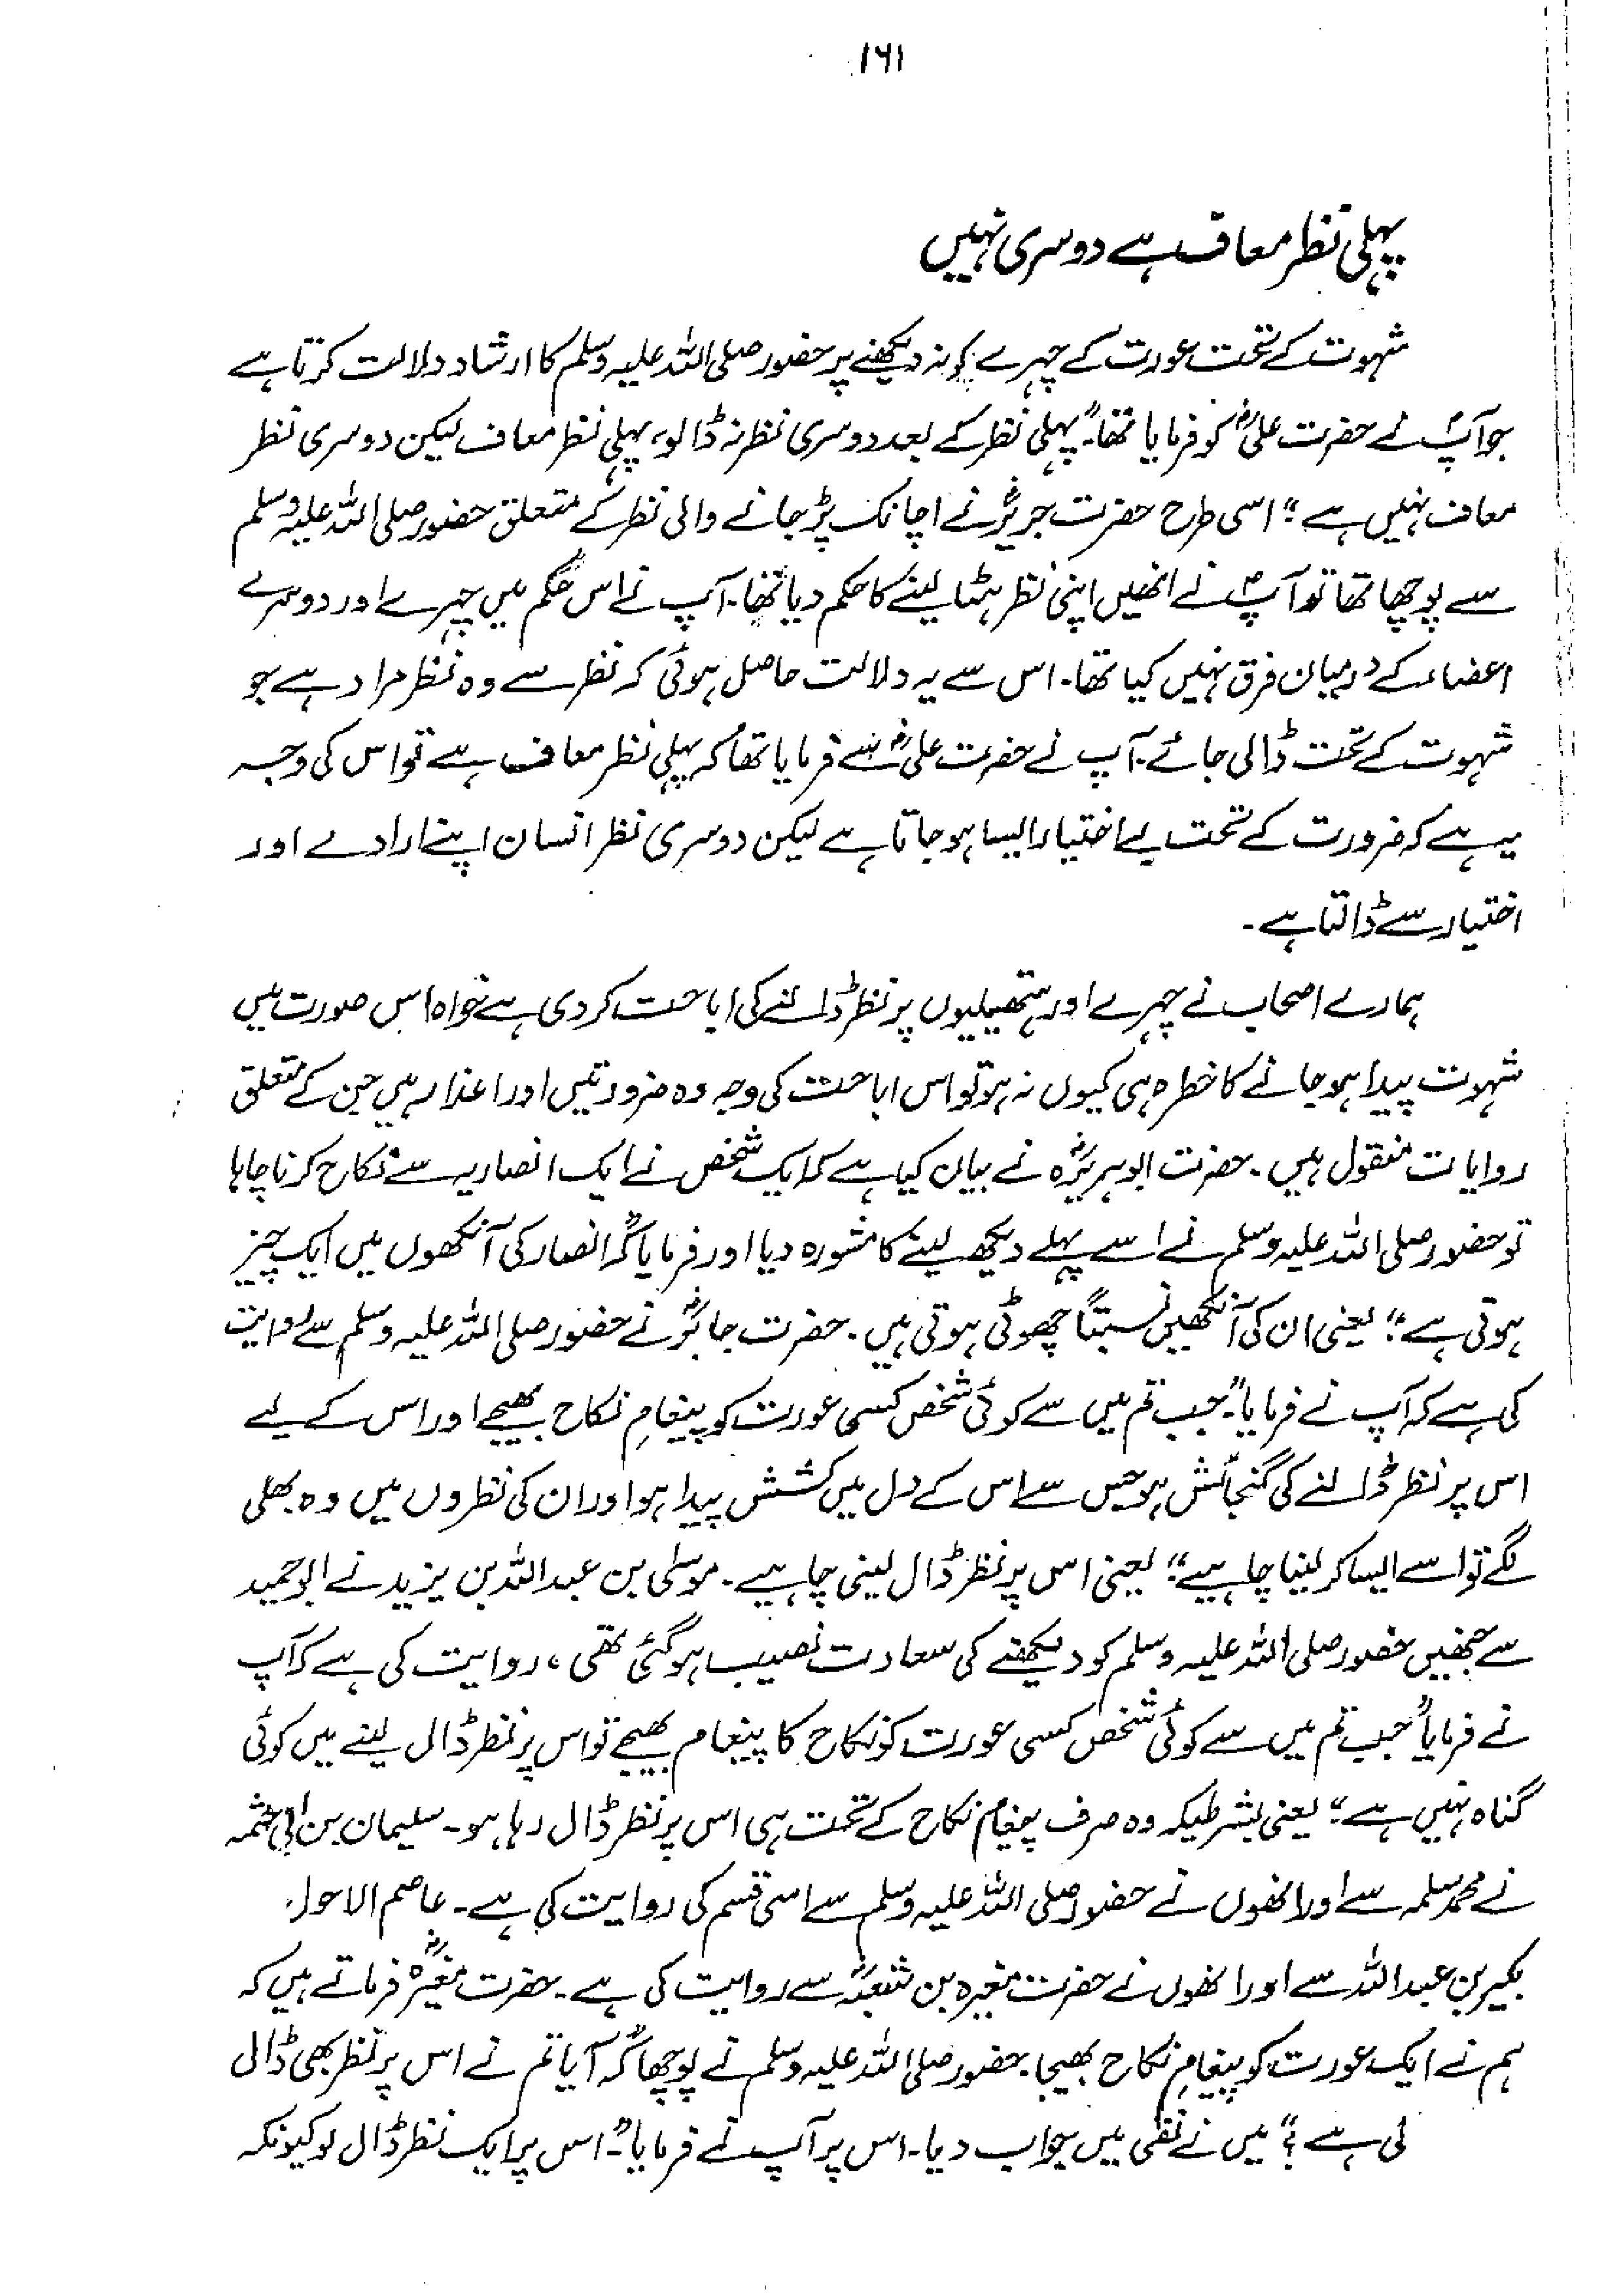 ۱۶۱
پہلی نظر معاف ہے دوسری نہیں
شہوت کے تحت عورت کے چہرے کو نہ دیکھنے پر حضور صلی اللہ علیہ وسلم کا ارشاد دلالت کرتا ہے
جو آپؐ نے حضرت علیؓ کو فرمایا تھا۔ "پہلی نظر کے بعد دوسری نظر نہ ڈالو، پہلی نظر معاف لیکن دوسری نظر
معاف نہیں ہے"۔ اسی طرح حضرت جریرؓ نے اچانک پڑ جانے والی نظر کے متعلق حضور صلی اللہ علیہ وسلم
سے پوچھا تھا تو آپؐ نے انھیں اپنی نظر ہٹا لینے کا حکم دیا تھا۔ آپ نے اس حکم میں چہرے اور دوسرے
اعضاء کے درمیان فرق نہیں کیا تھا۔ اس سے یہ دلالت حاصل ہوئی کہ نظر سے وہ نظر مراد ہے جو
شہوت کے تحت ڈالی جائے۔ آپ نے حضرت علیؓ سے فرمایا تھا کہ پہلی نظر معاف ہے تو اس کی وجہ
یہ ہے کہ ضرورت کے تحت بے اختیار ایسا ہو جاتا ہے لیکن دوسری نظر انسان اپنے ارادے اور
اختیار سے ڈالتا ہے۔
ہمارے اصحاب نے چہرے اور ہتھیلیوں پر نظر ڈالنے کی اباحت کر دی ہے خواہ اس صورت میں
شہوت پیدا ہو جانے کا خطرہ ہی کیوں نہ ہو تو اس اباحت کی وجہ وہ ضرورتیں اور اعذار ہیں جن کے متعلق
روایات منقول ہیں۔ حضرت ابو ہریرہؓ نے بیان کیا ہے کہ ایک شخص نے ایک انصاریہ سے نکاح کرنا چاہا
تو حضور صلی اللہ علیہ وسلم نے اسے پہلے دیکھ لینے کا مشورہ دیا اور فرمایا کہ "انصار کی آنکھوں میں ایک چیز
ہوتی ہے"۔ یعنی ان کی آنکھیں نسبتاً چھوٹی ہوتی ہیں۔ حضرت جابرؓ نے حضور صلی اللہ علیہ وسلم سے روایت
کی ہے کہ آپ نے فرمایا "جب تم میں سے کوئی شخص کسی عورت کو پیغامِ نکاح بھیجے اور اس کے لیے
اس پر نظر ڈالنے کی گنجائش ہو جس سے اس کے دل میں کشش پیدا ہو اور ان کی نظروں میں وہ بھلی
لگے تو اسے ایسا کر لینا چاہیے"۔ یعنی اس پر نظر ڈال لینی چاہیے۔ موسیٰ بن عبداللہ بن یزید نے ابو حمید
سے جنھیں حضور صلی اللہ علیہ وسلم کو دیکھنے کی سعادت نصیب ہو گئی تھی، روایت کی ہے کہ آپ
نے فرمایا "جب تم میں سے کوئی شخص کسی عورت کو نکاح کا پیغام بھیجے تو اس پر نظر ڈال لینے میں کوئی
گناہ نہیں ہے"۔ یعنی بشرطیکہ وہ صرف پیغام نکاح کے تحت ہی اس پر نظر ڈال رہا ہو۔ سلیمان بن ابی حثمہ
نے محمد سلمہ سے اور انھوں نے حضور صلی اللہ علیہ وسلم سے اسی قسم کی روایت کی ہے۔ عاصم الاحول
بکیر بن عبداللہ سے اور انھوں نے حضرت مغیرہ بن شعبہؓ سے روایت کی ہے۔ حضرت مغیرہؓ فرماتے ہیں کہ
ہم نے ایک عورت کو پیغامِ نکاح بھیجا۔ حضور صلی اللہ علیہ وسلم نے پوچھا کہ "آیا تم نے اس پر نظر بھی ڈال
لی ہے؟" میں نے نفی میں جواب دیا۔ اس پر آپ نے فرمایا "۔ اس پر ایک نظر ڈال لو کیونکہ